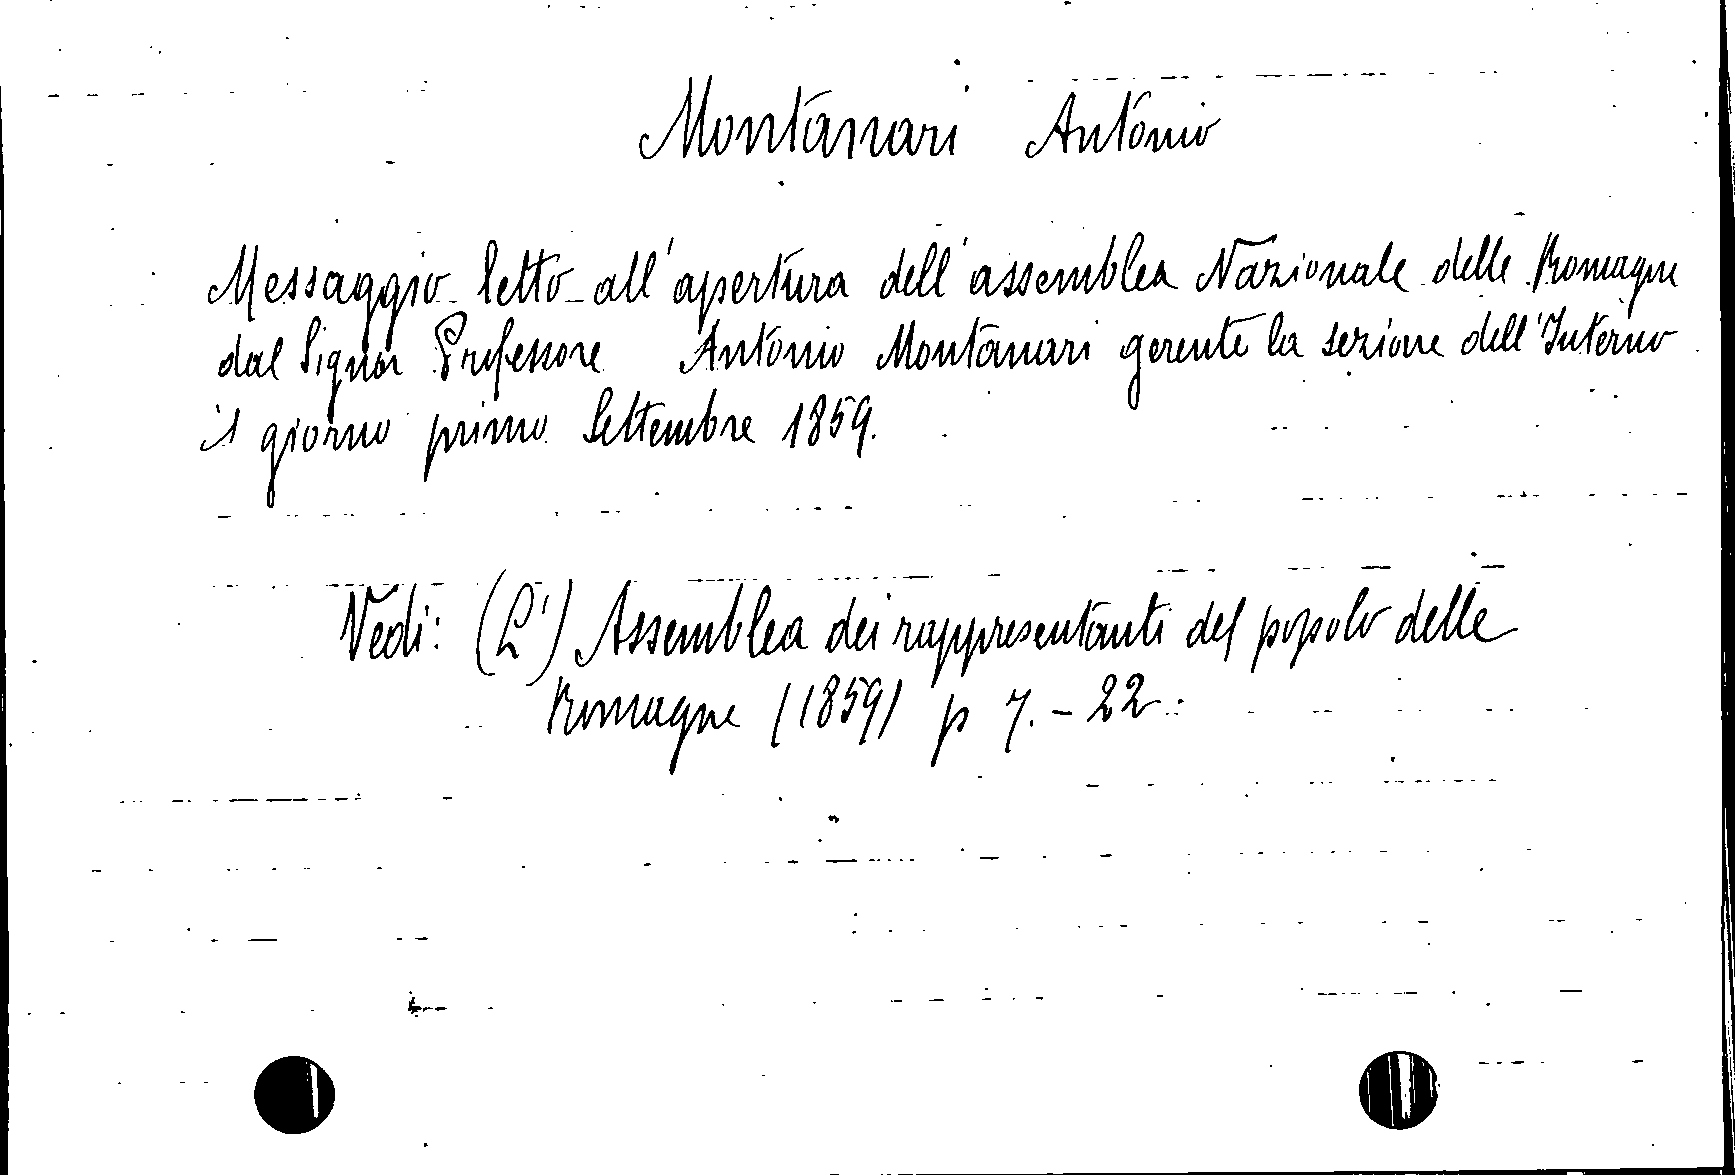 Montanari Antonio
Messaggio letto all'apertura dell'assemblea Nazionale delle Romagne
dal Signor Professore Antonio Montanari gerente la sezione dell'Interno
il giorno primo Settembre 1859.
Vedi: (L') Assemblea dei rappresentanti del popolo delle
Romagne (1859) p 7.-22.